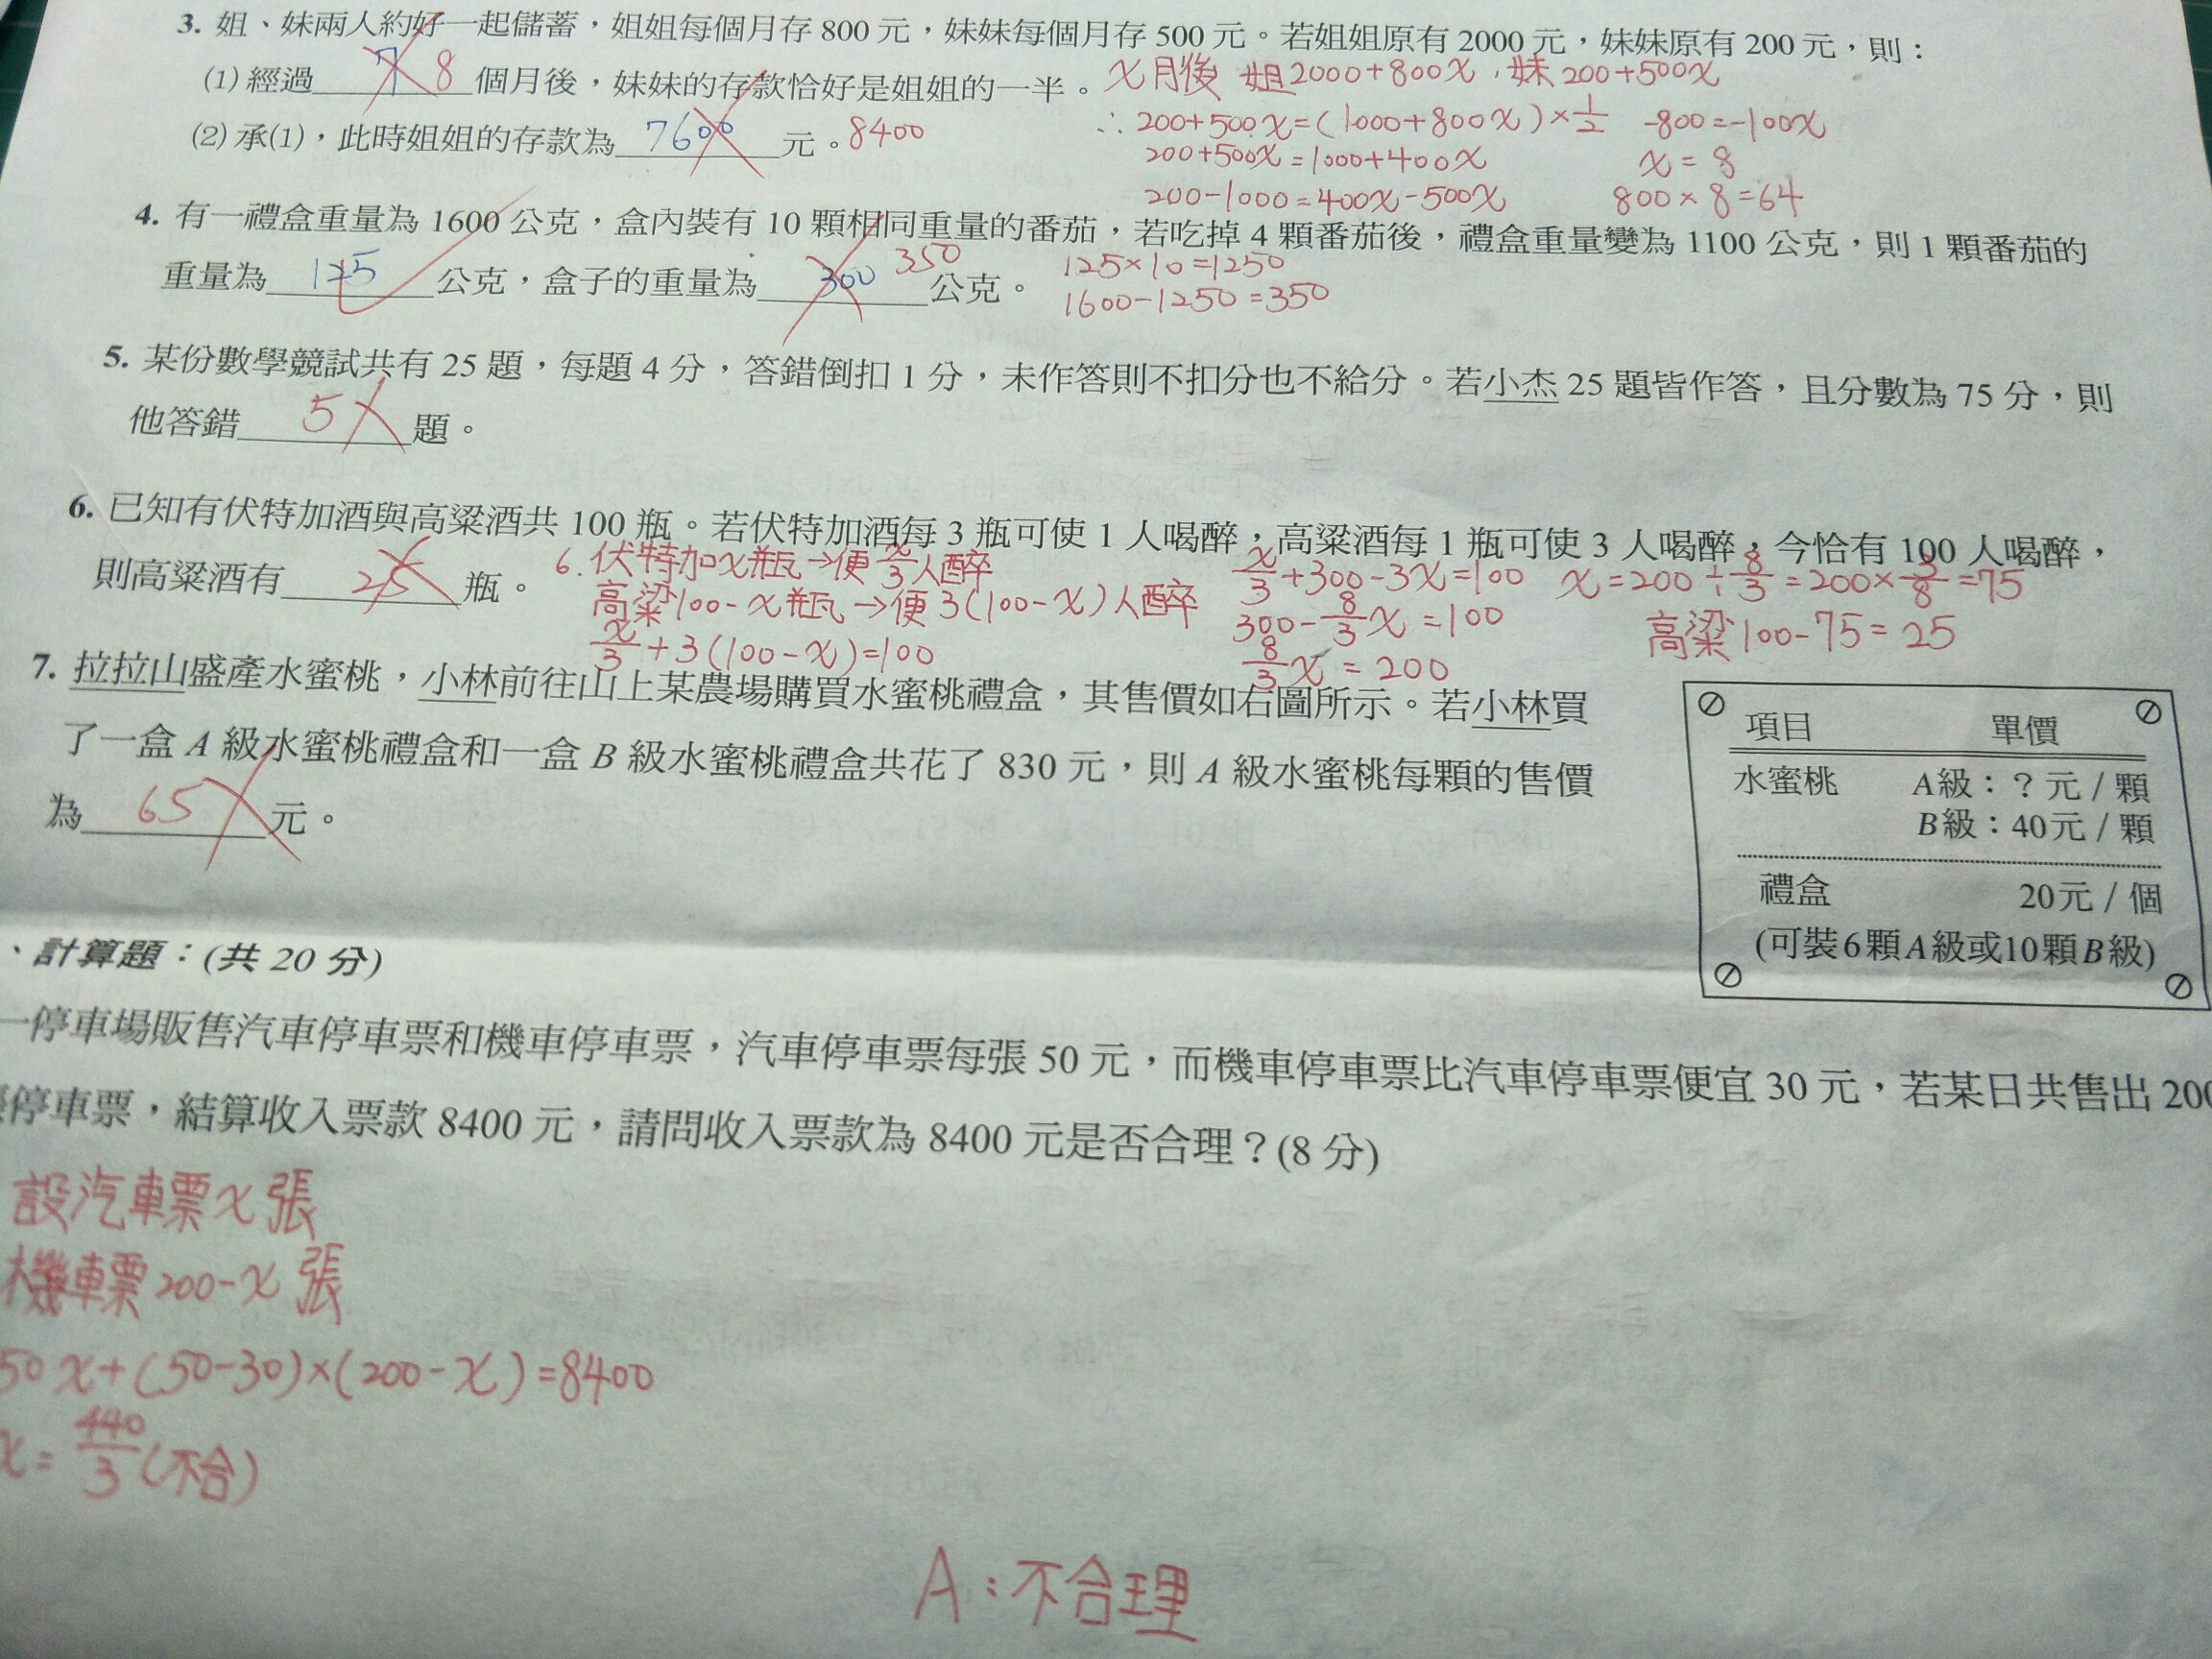 3. 姐、妹兩人約好一起儲蓄，姐姐每個月存 800 元，妹妹每個月存 500 元。若姐姐原有 2000 元，妹妹原有 200 元，則：
(1) 經過 7 8 個月後，妹妹的存款恰好是姐姐的一半。
x月後 姐2000+800x，妹200+500x
(2) 承(1)，此時姐姐的存款為 7600 元。8400
∴200+500x=(1000+800x)×1/2
200+500x=1000+400x
200-1000=400x-500x
-800=-100x
x=8
800×8=64
4. 有一禮盒重量為 1600 公克，盒內裝有 10 顆相同重量的番茄，若吃掉 4 顆番茄後，禮盒重量變為 1100 公克，則 1 顆番茄的
重量為 125 公克，盒子的重量為 300 350 公克。
125×10=1250
1600-1250=350
5. 某份數學競試共有 25 題，每題 4 分，答錯倒扣 1 分，未作答則不扣分也不給分。若小杰 25 題皆作答，且分數為 75 分，則
他答錯 5 題。
6. 已知有伏特加酒與高粱酒共 100 瓶。若伏特加酒每 3 瓶可使 1 人喝醉，高粱酒每 1 瓶可使 3 人喝醉，今恰有 100 人喝醉，
則高粱酒有 25 瓶。
6. 伏特加x瓶→便x/3人醉
高粱100-x瓶→便3(100-x)人醉
x/3+3(100-x)=100
x/3+300-3x=100
300-8/3x=100
8/3x=200
x=200÷8/3=200×3/8=75
高粱100-75=25
7. 拉拉山盛產水蜜桃，小林前往山上某農場購買水蜜桃禮盒，其售價如右圖所示。若小林買
了一盒 A 級水蜜桃禮盒和一盒 B 級水蜜桃禮盒共花了 830 元，則 A 級水蜜桃每顆的售價
為 65 元。
項目 單價
水蜜桃 A級：？元 / 顆
B級：40元 / 顆
禮盒 20元 / 個
(可裝6顆A級或10顆B級)
、計算題：(共 20 分)
一停車場販售汽車停車票和機車停車票，汽車停車票每張 50 元，而機車停車票比汽車停車票便宜 30 元，若某日共售出 200
停車票，結算收入票款 8400 元，請問收入票款為 8400 元是否合理？(8 分)
設汽車票x張
機車票200-x張
50x+(50-30)×(200-x)=8400
x=440/3(不合)
A：不合理